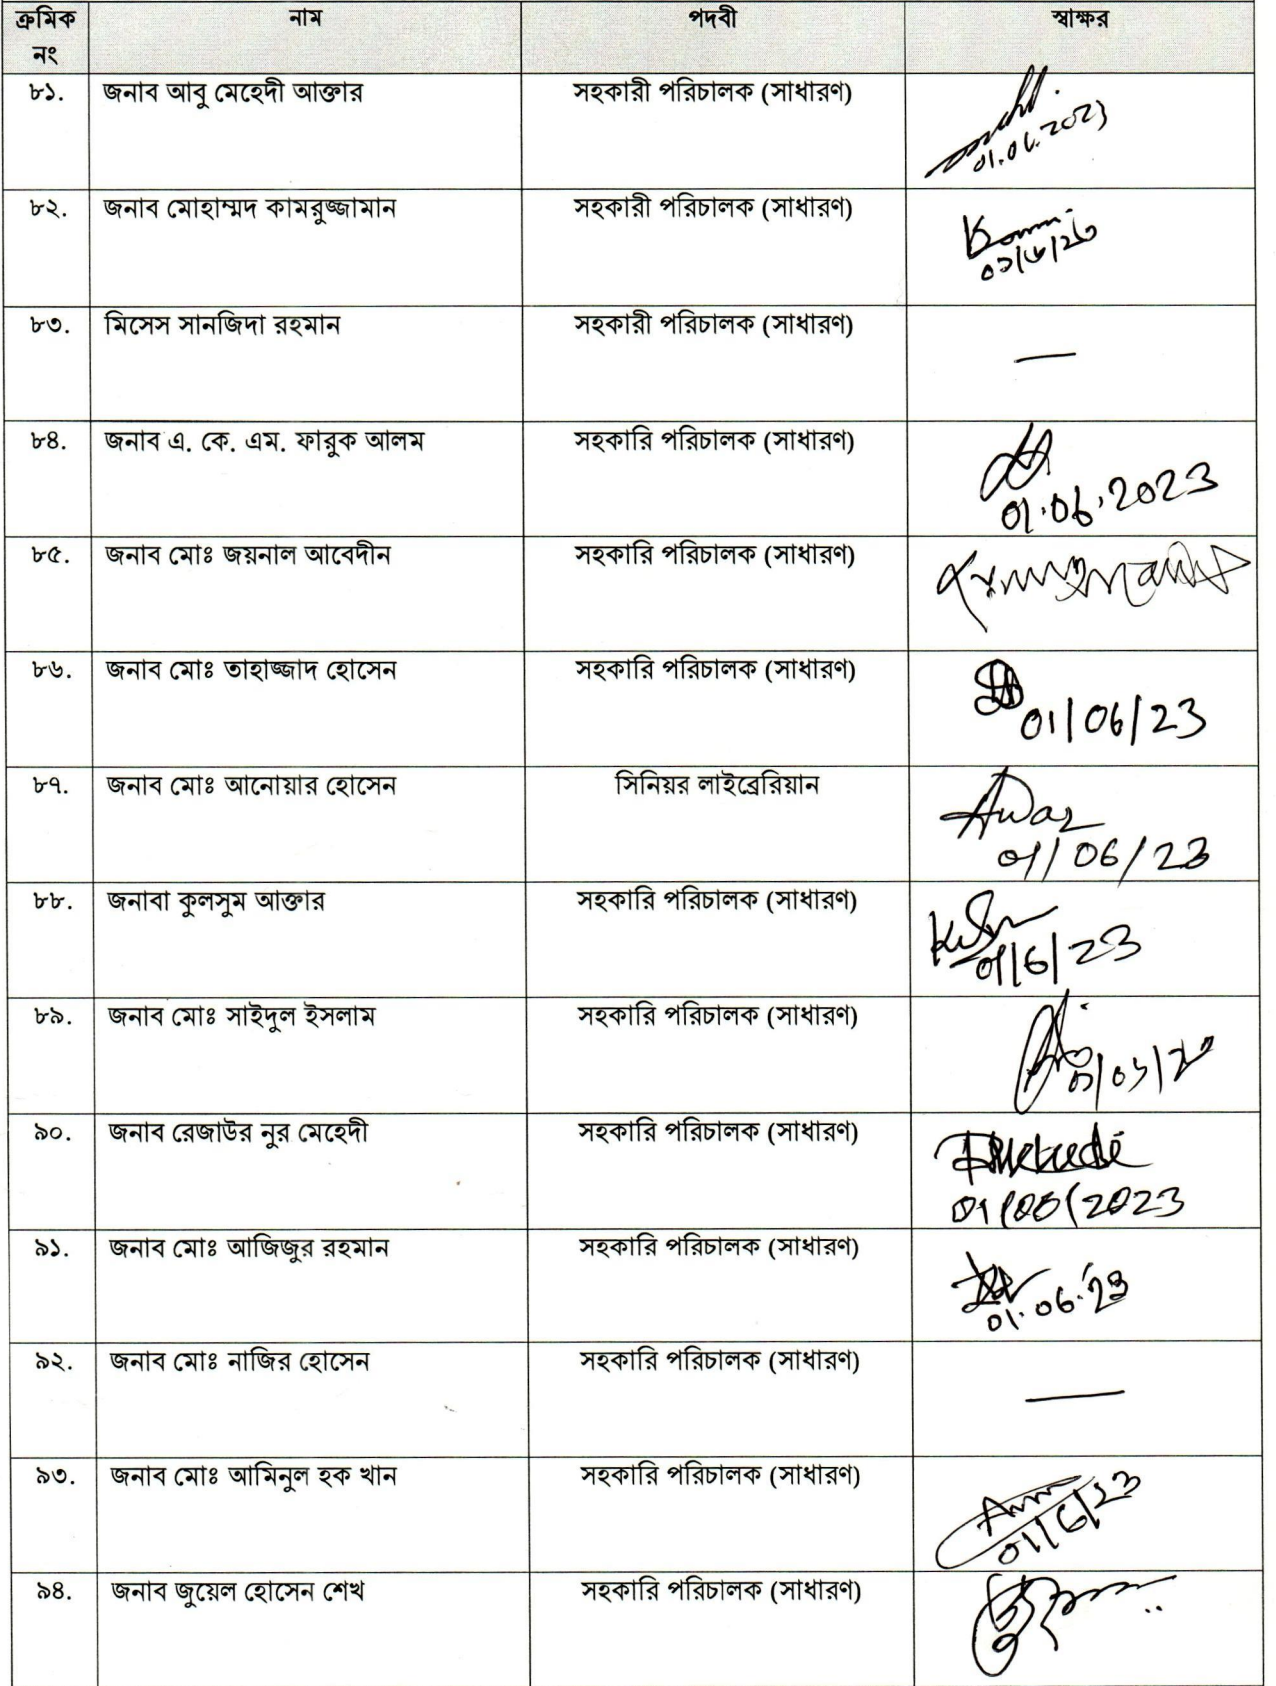 ক্রমিক নং নাম পদবী স্বাক্ষর
৮১. জনাব আবু মেহেদী আক্তার সহকারী পরিচালক (সাধারণ)
01.06.2023
৮২. জনাব মোহাম্মদ কামরুজ্জামান সহকারী পরিচালক (সাধারণ)
৮৩. মিসেস সানজিদা রহমান সহকারী পরিচালক (সাধারণ) —
৮৪. জনাব এ. কে. এম. ফারুক আলম সহকারি পরিচালক (সাধারণ)
01.06.2023
৮৫. জনাব মোঃ জয়নাল আবেদীন সহকারি পরিচালক (সাধারণ)
৮৬. জনাব মোঃ তাহাজ্জাদ হোসেন সহকারি পরিচালক (সাধারণ)
01/06/23
৮৭. জনাব মোঃ আনোয়ার হোসেন সিনিয়র লাইব্রেরিয়ান
01/06/23
৮৮. জনাবা কুলসুম আক্তার সহকারি পরিচালক (সাধারণ)
01/6/23
৮৯. জনাব মোঃ সাইদুল ইসলাম সহকারি পরিচালক (সাধারণ)
৯০. জনাব রেজাউর নুর মেহেদী সহকারি পরিচালক (সাধারণ)
01/06/2023
৯১. জনাব মোঃ আজিজুর রহমান সহকারি পরিচালক (সাধারণ)
01.06.23
৯২. জনাব মোঃ নাজির হোসেন সহকারি পরিচালক (সাধারণ) —
৯৩. জনাব মোঃ আমিনুল হক খান সহকারি পরিচালক (সাধারণ)
01/6/23
৯৪. জনাব জুয়েল হোসেন শেখ সহকারি পরিচালক (সাধারণ)